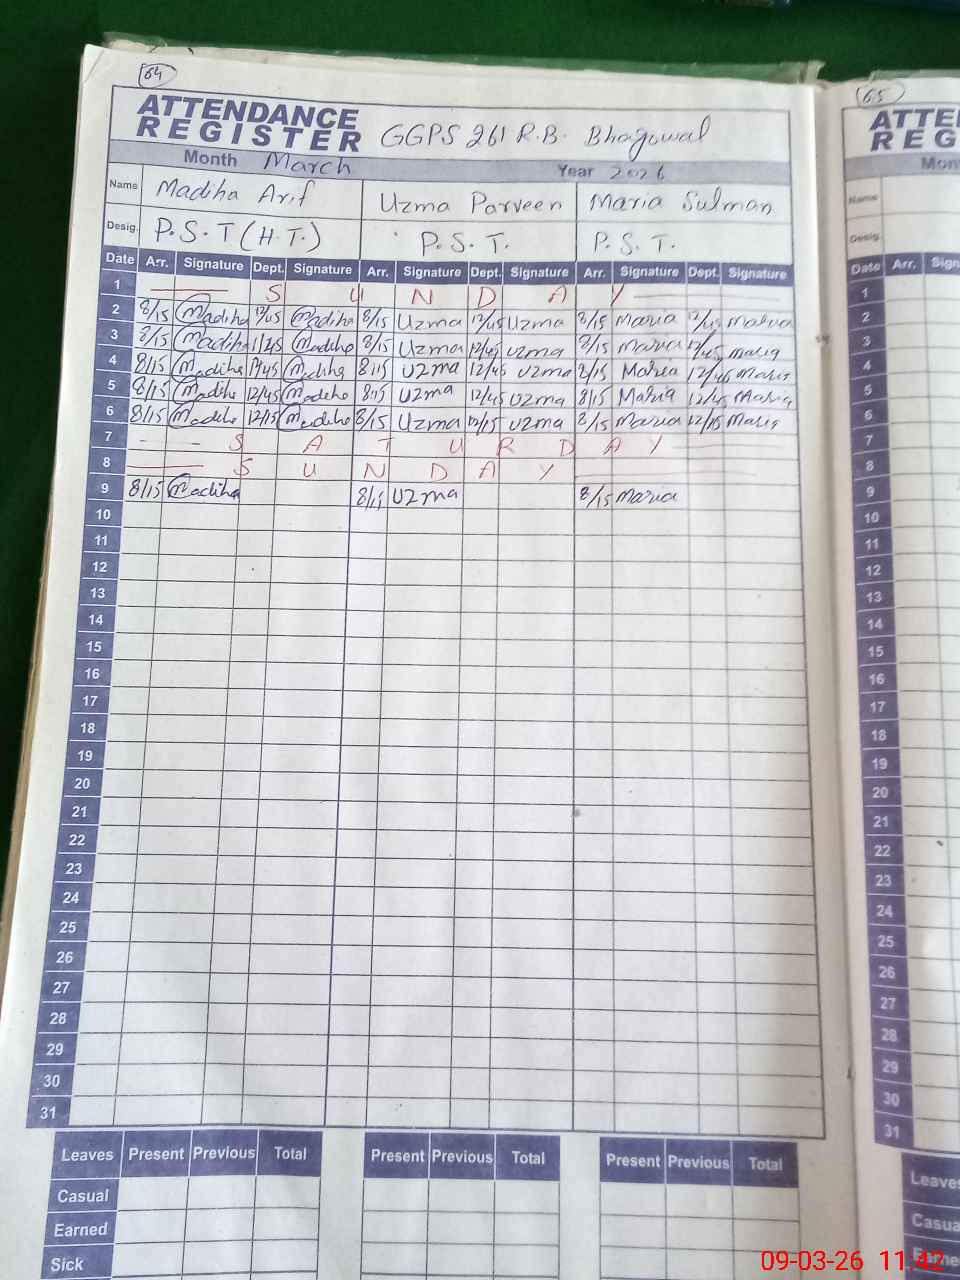 64
ATTENDANCE
REGISTER GGPS 261 R.B. Bhagowal
Month March Year 2026
Name Madiha Arif Uzma Parveen Maria Sulman
Desig. P.S.T (H.T.) P.S.T. P.S.T.
Date Arr. Signature Dept. Signature Arr. Signature Dept. Signature Arr. Signature Dept. Signature
1 S U N D A Y
2 8/15 Madiha 12/45 Madiha 8/15 Uzma 12/45 Uzma 8/15 Maria 12/45 Maria
3 8/15 Madiha Madiha 8/15 Uzma 12/45 Uzma 8/15 Maria 12/45 Maria
4 8/15 Madiha Madiha 8:15 Uzma 12/45 Uzma 8/15 Maria 12/45 Maria
5 8/15 Madiha 12/45 Madiha 8:15 Uzma 12/45 Uzma 8/15 Maria 12/45 Maria
6 8/15 Madiha 12/15 Madiha 8/15 Uzma 12/15 Uzma 8/15 Maria 12/15 Maria
7 S A T U R D A Y
8 S U N D A Y
9 8/15 Madiha 8/15 Uzma 8/15 Maria
10
11
12
13
14
15
16
17
18
19
20
21
22
23
24
25
26
27
28
29
30
31
Leaves Present Previous Total Present Previous Total Present Previous Total
Casual
Earned
Sick
65
ATTE
REG
Mon
Name
Desig.
Date Arr. Sign
1
2
3
4
5
6
7
8
9
10
11
12
13
14
15
16
17
18
19
20
21
22
23
24
25
26
27
28
29
30
31
Leaves
Casua
09-03-26 11:42